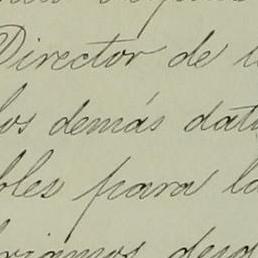 Director de l
los demás dat
bles para l
riamos desd